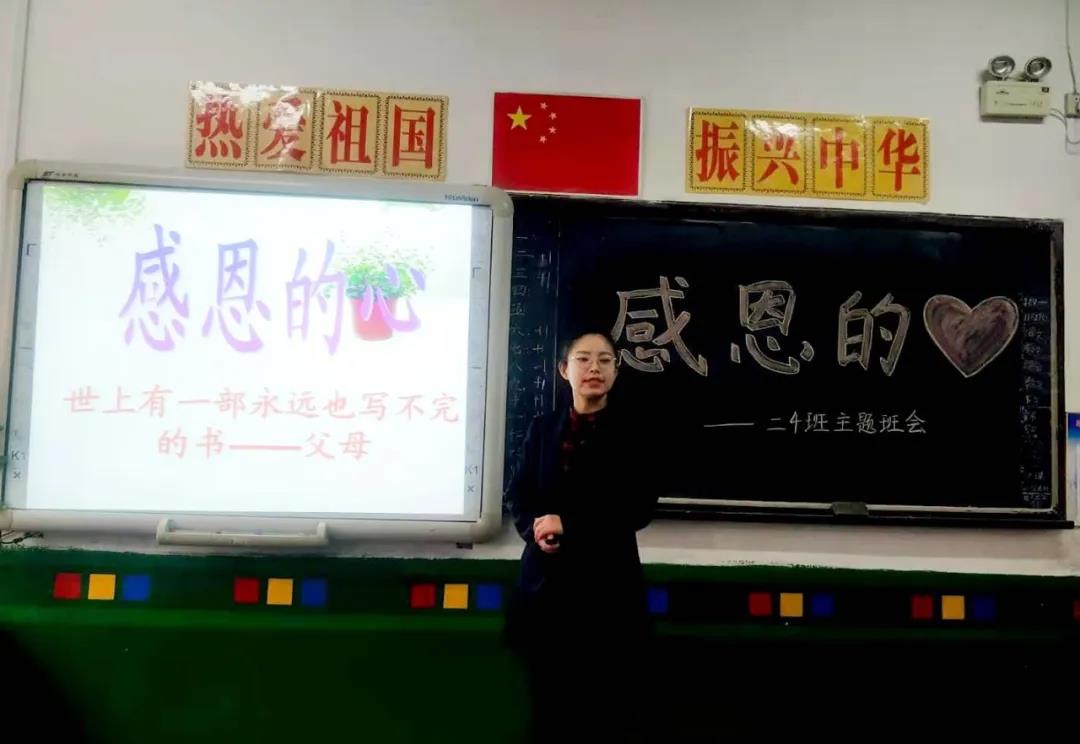 热爱祖国
振兴中华
感恩的心
世上有一部永远也写不完
的书——父母
感恩的
—— 二4班主题班会
K1
K1